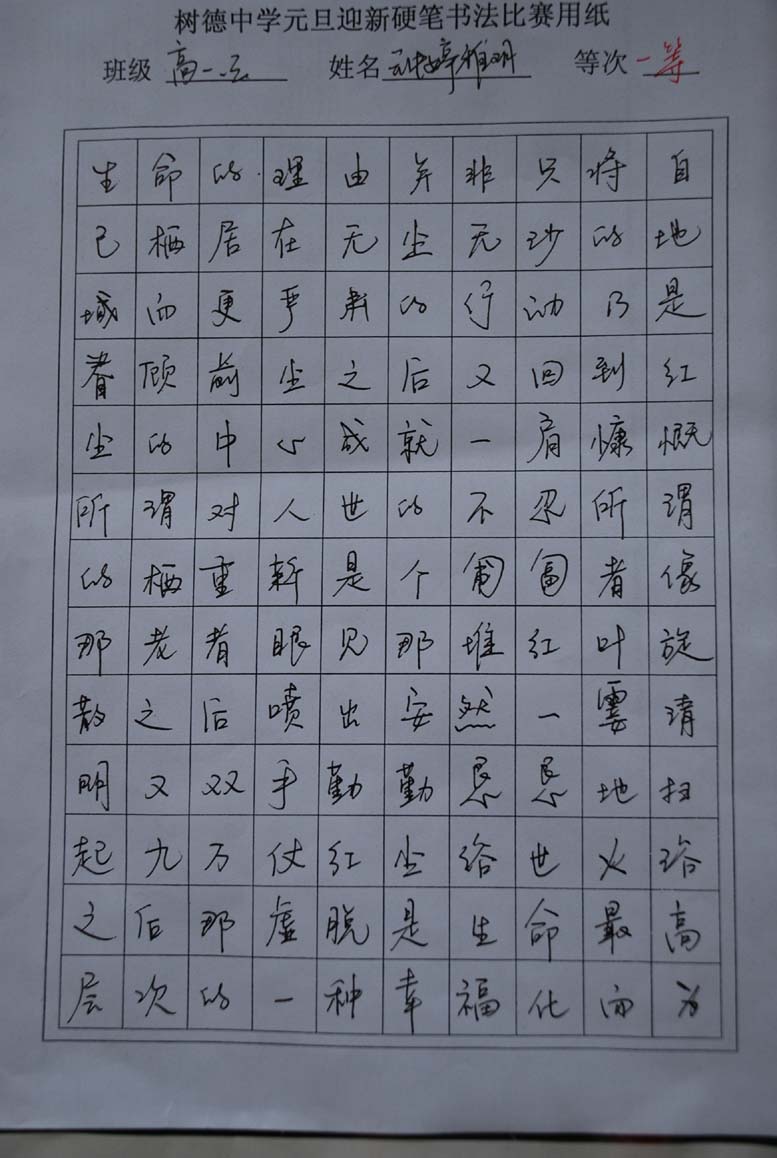 树德中学元旦迎新硬笔书法比赛用纸
班级 高一 姓名 婷雅玥 等次 一等
生命的理由并非只将自
己栖居在无尘无沙的地
域而更严肃的行动乃是
眷顾前尘之后又回到红
尘的中心成就一肩慷慨
所谓对人世的不忍所谓
的栖重新是个匍匐者像
那老者眼见那堆红叶旋
散之后喷出安然一霎清
明又双手勤勤恳恳地扫
起九万仗红尘给世火给
之后那虚脱是生命最高
层次的一种幸福化而为